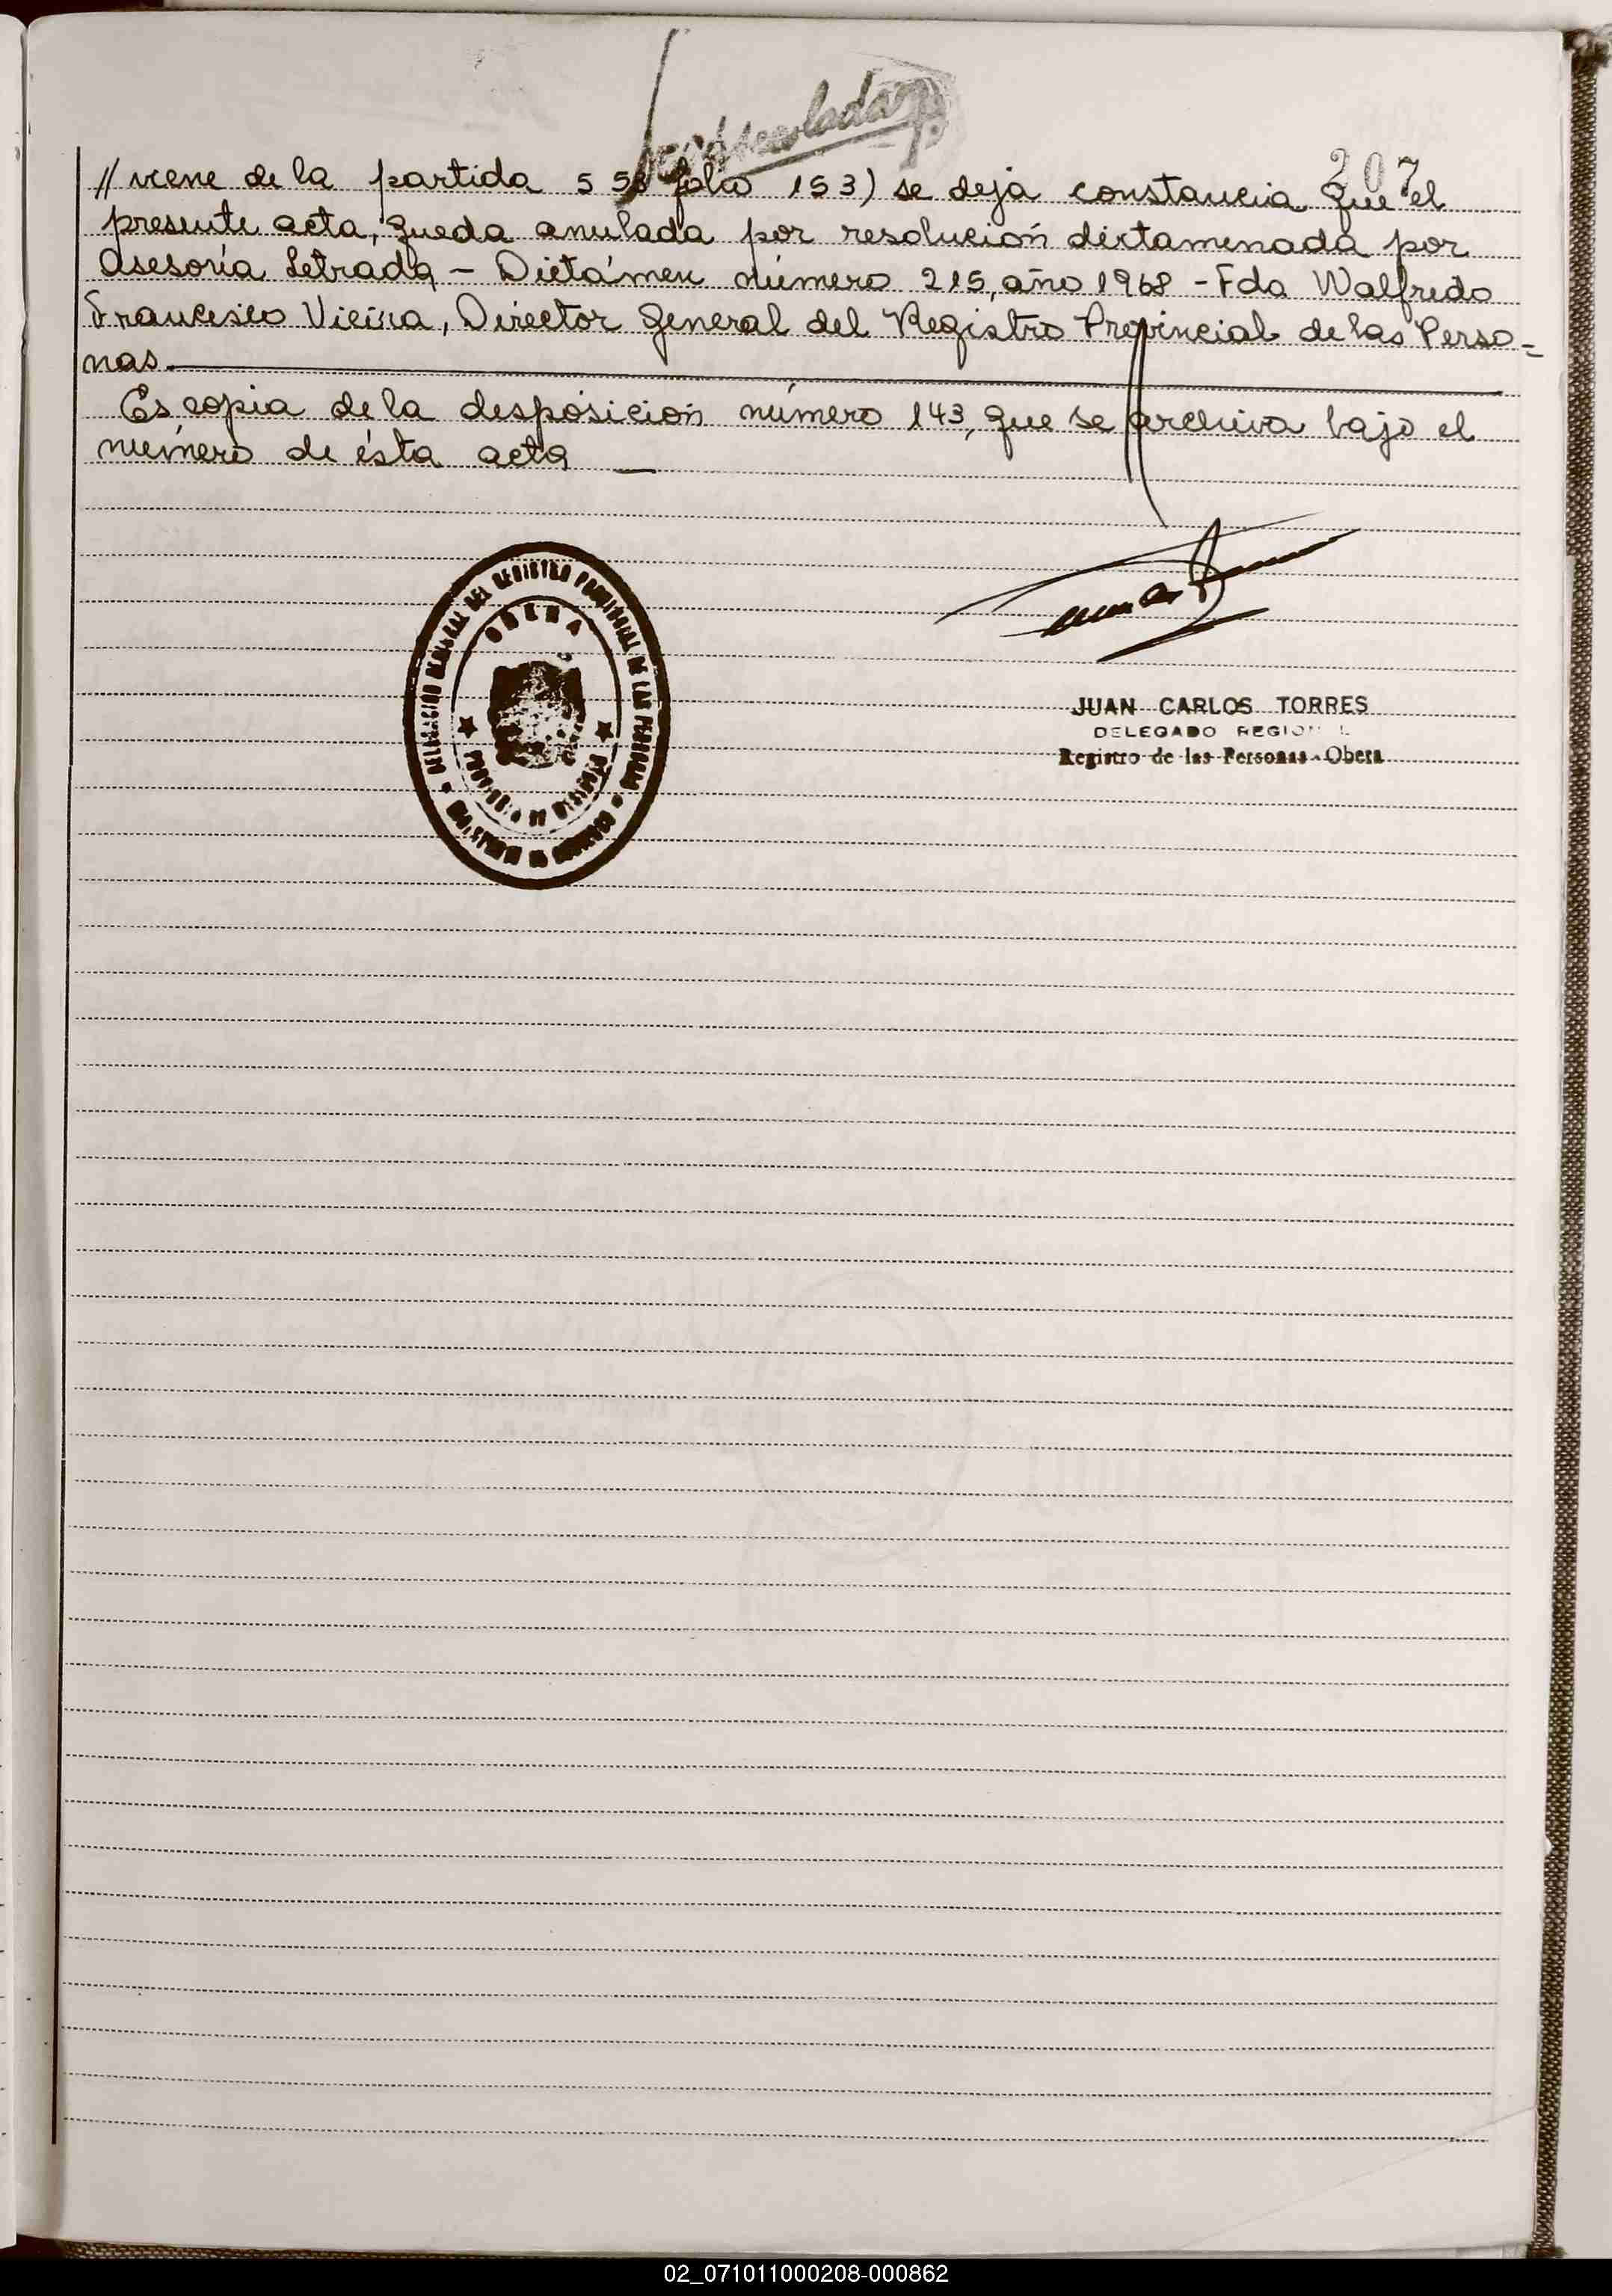 207
// viene de la partida 5 folio 153) se deja constancia que el
presente acta, queda anulada por resolución dictamenada por
Asesoría Letrada – Dictámen número 215, año 1968 – Fdo Walfredo
Francisco Vieira, Director General del Registro Provincial de las Perso=
nas.
Es copia de la desposición número 143, que se archiva bajo el
número de ésta acta —
DELEGACION REGIONAL DEL REGISTRO PROVINCIAL DE LAS PERSONAS
OBERA
PROVINCIA DE MISIONES
JUAN CARLOS TORRES
DELEGADO REGION L
Registro de las Personas - Obera
02_071011000208-000862